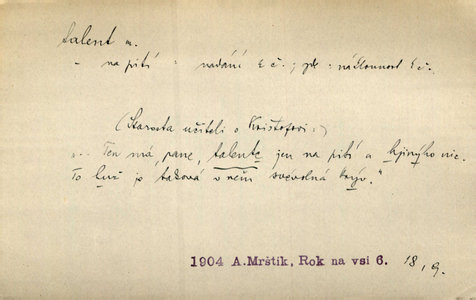 talent m.
- na pití : nadání k č.; zde : náklonnost k č.
(Starosta učiteli o Krištofovi:)
„... Ten má, pane, talentc jen na pití a k jinýho nic.
To už je taková v něm svevolná krýv."
1904 A.Mrštík, Rok na vsi 6. 18, 9.